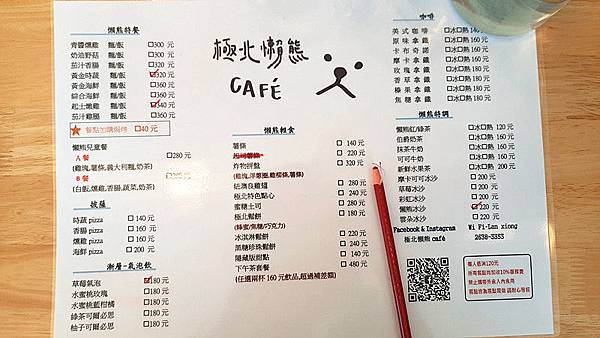 極北懶熊
CAFÉ
懶熊特餐
青醬燻雞 麵/飯 □300 元
奶油野菇 麵/飯 □300 元
茄汁香腸 麵/飯 □320 元
黃金時蔬 麵/飯 □320 元
黃金海鮮 麵/飯 □360 元
綜合海鮮 麵/飯 □360 元
起士燻雞 麵/飯 □340 元
茄汁雞腿 麵/飯 □360 元
★ 餐點加購焗烤 □40 元
懶熊兒童餐
A 餐 □280 元
(雞塊,薯條,義大利麵,奶茶)
B 餐
(白飯,燻雞,香腸,蔬菜,奶茶)
披薩
時蔬 pizza □ 140 元
香腸 pizza □ 160 元
燻雞 pizza □ 160 元
海鮮 pizza □ 200 元
漸層-氣泡飲
草莓氣泡 □180 元
水蜜桃玫瑰 □180 元
水蜜桃藍柑橘 □180 元
綠茶可爾必思 □180 元
柚子可爾必思 □180 元
懶熊輕食
薯條 □ 140 元
□ 220 元
炸物拼盤 □ 320 元
(雞塊,洋蔥圈,雞柳條,薯條)
紐澳良雞翅 □ 280 元
極北特色點心 □ 240 元
蜜糖土司 □ 280 元
極北鬆餅 □ 180 元
(蜂蜜/焦糖/巧克力)
冰淇淋鬆餅 □ 220 元
黑糖珍珠鬆餅 □ 240 元
隱藏版甜點 □ 240 元
下午茶套餐 □ 480 元
(任選兩杯 160 元飲品,超過補差額)
咖啡
美式咖啡 □冰□熱 140
原味拿鐵 □冰□熱 160
卡布奇諾 □冰□熱 160 元
摩卡拿鐵 □冰□熱 160 元
玫瑰拿鐵 □冰□熱 160 元
香草拿鐵 □冰□熱 160 元
榛果拿鐵 □冰□熱 160 元
焦糖拿鐵 □冰□熱 160 元
懶熊特調
懶熊紅/綠茶 □冰□熱 120 元
伯爵奶茶 □冰□熱 160 元
抹茶牛奶 □冰□熱 160 元
可可牛奶 □冰□熱 160 元
新鮮水果茶 □冰□熱 180 元
摩卡可可冰沙 □ 200 元
草莓冰沙 □ 200 元
彩虹冰沙 □ 200 元
懶熊冰沙 □ 220 元
雲朵冰沙 □ 200 元
Facebook & Instagram
極北懶熊 café
Wi Fi-Lan xiong
2638-3353
個人低消120元